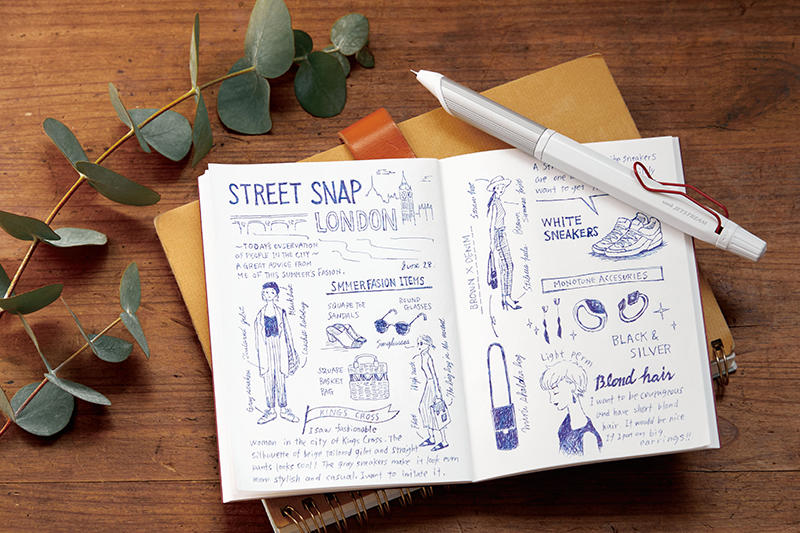 STREET SNAP
LONDON
~TODAY'S ONSERVATION
OF PEOPLE IN THE CITY~
A GREAT ADVICE FROM
ME OF THIS SUMMER'S FASION.
June 28.
SMMERFASION ITEMS
SQUARE TOE
SANDALS
ROUND
GLASSES
Sunglasses
SQUARE
BASKET
BAG
High waist
Flat
The big bag in the mood
KINGS CROSS
I saw fashionable
women in the city of Kings Cross. The
silhouette of beige tailored gilet and straight
pants looks cool! The gray sneakers make it look even
more stylish and casual. I want to imitate it.
BROWN X DENIM
Summer hat
Brown
Summer knit
want to get
WHITE
SNEAKERS
MONOTUNE ACCESORIES
BLACK &
SILVER
Light perm
Blond hair
I want to be courageous
and have short blond
hair. It would be nice
if I put on big
earrings!!
uni JETSTREAM